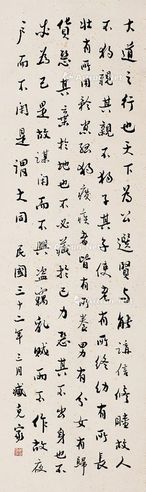 大道之行也天下為公選賢与能講信修睦故人
不獨親其親不獨子其子使老有所終幼有所長
壯有所用矜寡孤獨廢疾者皆有所養男有分女有歸
貨惡其棄於地也不必藏於己力惡其不出身也不
必為己是故謀閉而不興盜竊亂賊而不作故外
户而不閉是謂大同 民國三十二年三月臧克家